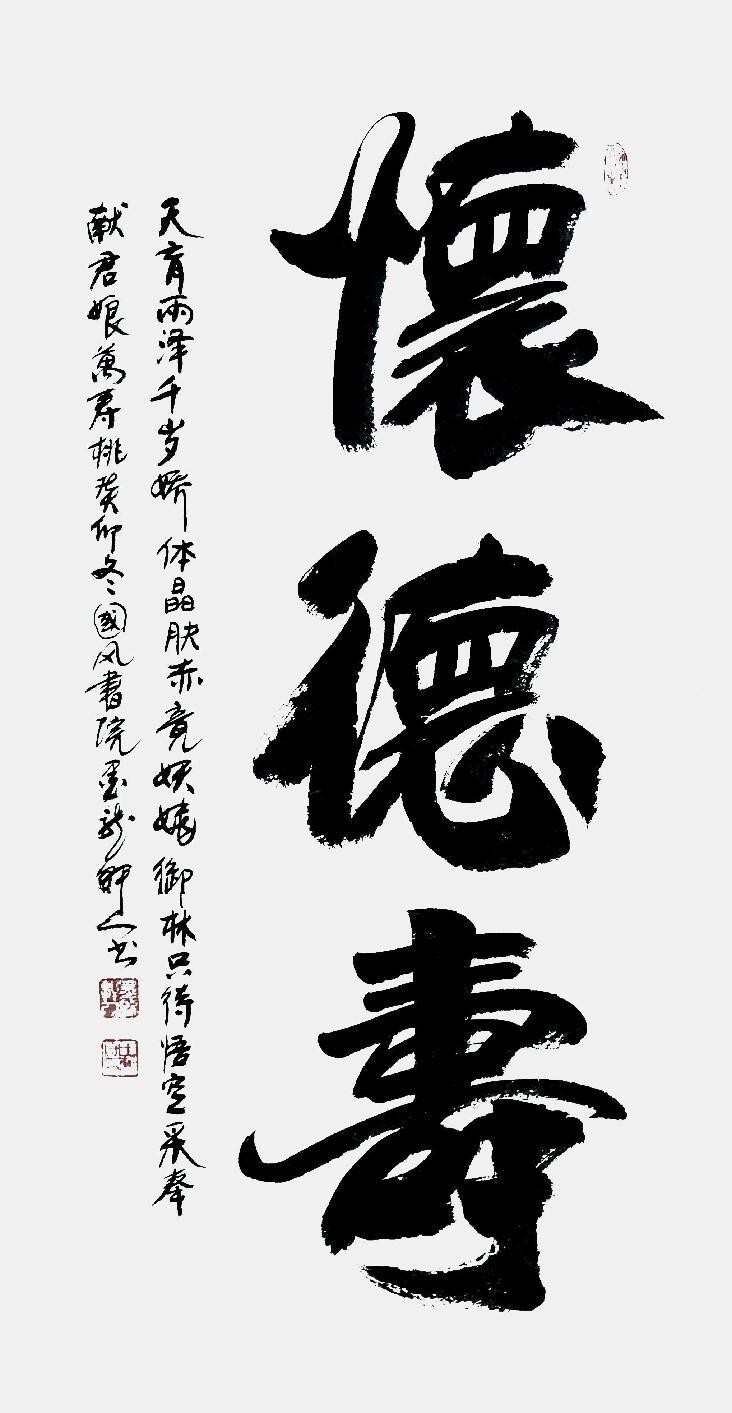 懷德壽
天育雨泽千岁娇体晶肤赤竟妖娆御林只待悟空采奉
献君娘萬寿桃癸卯冬國风書院墨龙野人书